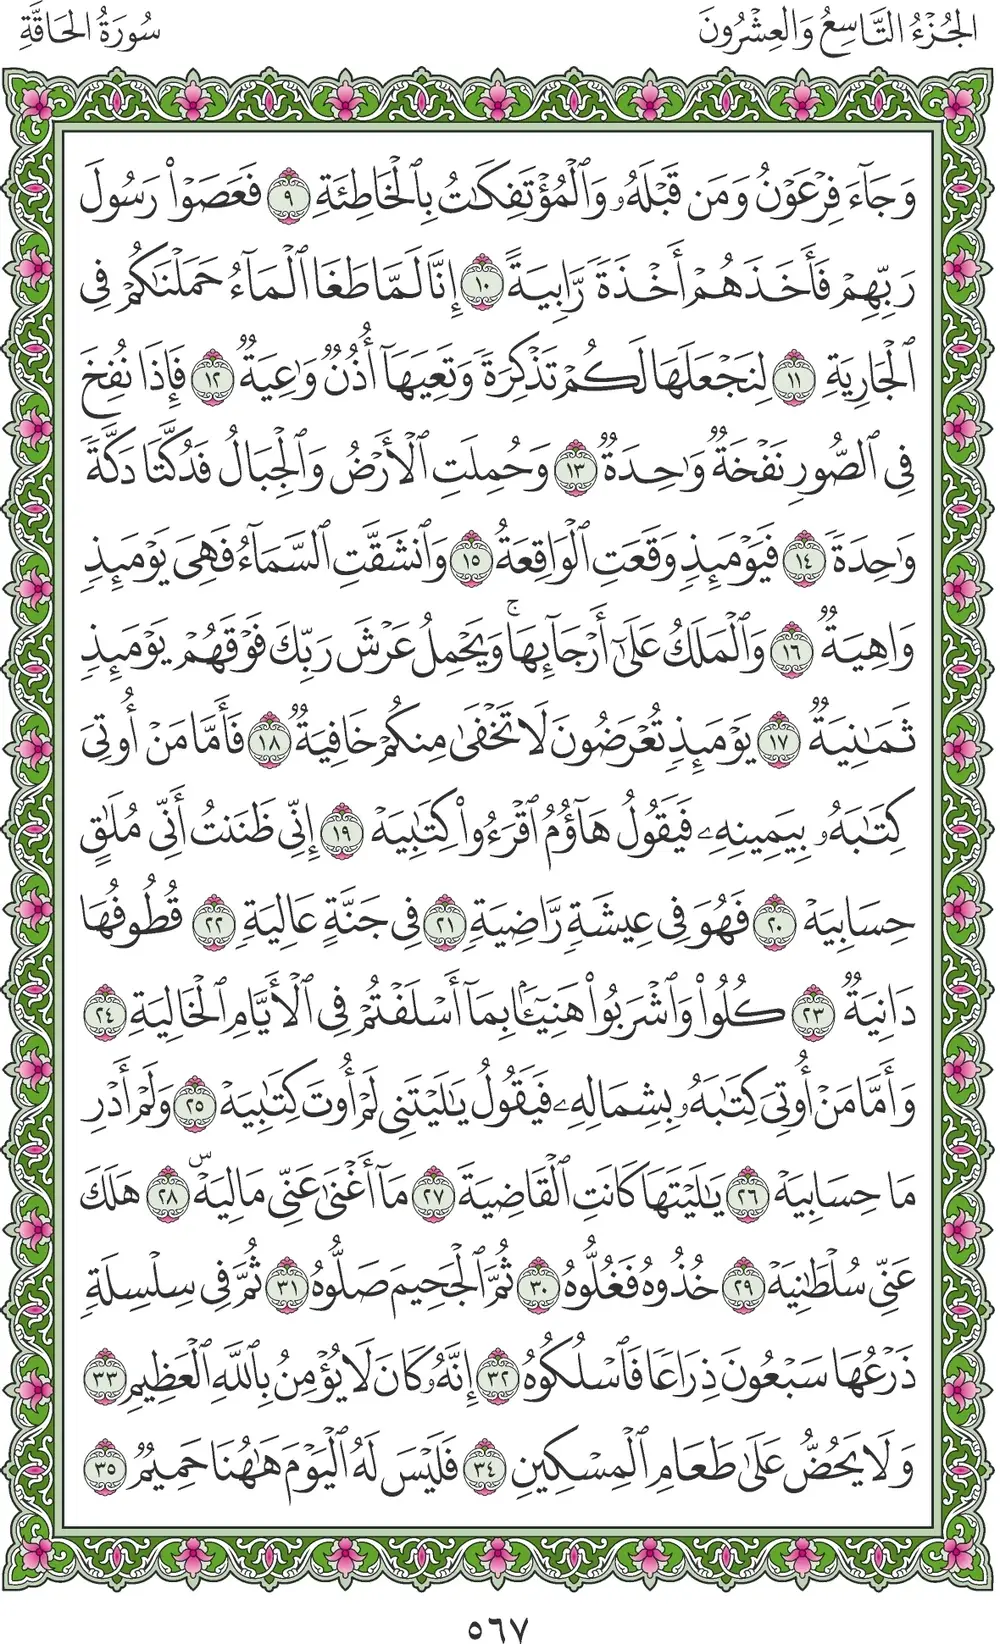 الجُزْءُ التَّاسِعُ وَالعِشْرُونَ
سُورَةُ الحَاقَّةِ
وَجَآءَ فِرْعَوْنُ وَمَن قَبْلَهُۥ وَٱلْمُؤْتَفِكَٰتُ بِٱلْخَاطِئَةِ ٩ فَعَصَوْا۟ رَسُولَ
رَبِّهِمْ فَأَخَذَهُمْ أَخْذَةً رَّابِيَةً ١٠ إِنَّا لَمَّا طَغَا ٱلْمَآءُ حَمَلْنَٰكُمْ فِى
ٱلْجَارِيَةِ ١١ لِنَجْعَلَهَا لَكُمْ تَذْكِرَةً وَتَعِيَهَآ أُذُنٌ وَٰعِيَةٌ ١٢ فَإِذَا نُفِخَ
فِى ٱلصُّورِ نَفْخَةٌ وَٰحِدَةٌ ١٣ وَحُمِلَتِ ٱلْأَرْضُ وَٱلْجِبَالُ فَدُكَّتَا دَكَّةً
وَٰحِدَةً ١٤ فَيَوْمَئِذٍ وَقَعَتِ ٱلْوَاقِعَةُ ١٥ وَٱنشَقَّتِ ٱلسَّمَآءُ فَهِىَ يَوْمَئِذٍ
وَاهِيَةٌ ١٦ وَٱلْمَلَكُ عَلَىٰٓ أَرْجَآئِهَا ۚ وَيَحْمِلُ عَرْشَ رَبِّكَ فَوْقَهُمْ يَوْمَئِذٍ
ثَمَٰنِيَةٌ ١٧ يَوْمَئِذٍ تُعْرَضُونَ لَا تَخْفَىٰ مِنكُمْ خَافِيَةٌ ١٨ فَأَمَّا مَنْ أُوتِىَ
كِتَٰبَهُۥ بِيَمِينِهِۦ فَيَقُولُ هَآؤُمُ ٱقْرَءُوا۟ كِتَٰبِيَهْ ١٩ إِنِّى ظَنَنتُ أَنِّى مُلَٰقٍ
حِسَابِيَهْ ٢٠ فَهُوَ فِى عِيشَةٍ رَّاضِيَةٍ ٢١ فِى جَنَّةٍ عَالِيَةٍ ٢٢ قُطُوفُهَا
دَانِيَةٌ ٢٣ كُلُوا۟ وَٱشْرَبُوا۟ هَنِيٓـًٔۢا بِمَآ أَسْلَفْتُمْ فِى ٱلْأَيَّامِ ٱلْخَالِيَةِ ٢٤
وَأَمَّا مَنْ أُوتِىَ كِتَٰبَهُۥ بِشِمَالِهِۦ فَيَقُولُ يَٰلَيْتَنِى لَمْ أُوتَ كِتَٰبِيَهْ ٢٥ وَلَمْ أَدْرِ
مَا حِسَابِيَهْ ٢٦ يَٰلَيْتَهَا كَانَتِ ٱلْقَاضِيَةَ ٢٧ مَآ أَغْنَىٰ عَنِّى مَالِيَهْ ۜ ٢٨ هَلَكَ
عَنِّى سُلْطَٰنِيَهْ ٢٩ خُذُوهُ فَغُلُّوهُ ٣٠ ثُمَّ ٱلْجَحِيمَ صَلُّوهُ ٣١ ثُمَّ فِى سِلْسِلَةٍ
ذَرْعُهَا سَبْعُونَ ذِرَاعًا فَٱسْلُكُوهُ ٣٢ إِنَّهُۥ كَانَ لَا يُؤْمِنُ بِٱللَّهِ ٱلْعَظِيمِ ٣٣
وَلَا يَحُضُّ عَلَىٰ طَعَامِ ٱلْمِسْكِينِ ٣٤ فَلَيْسَ لَهُ ٱلْيَوْمَ هَٰهُنَا حَمِيمٌ ٣٥
٥٦٧